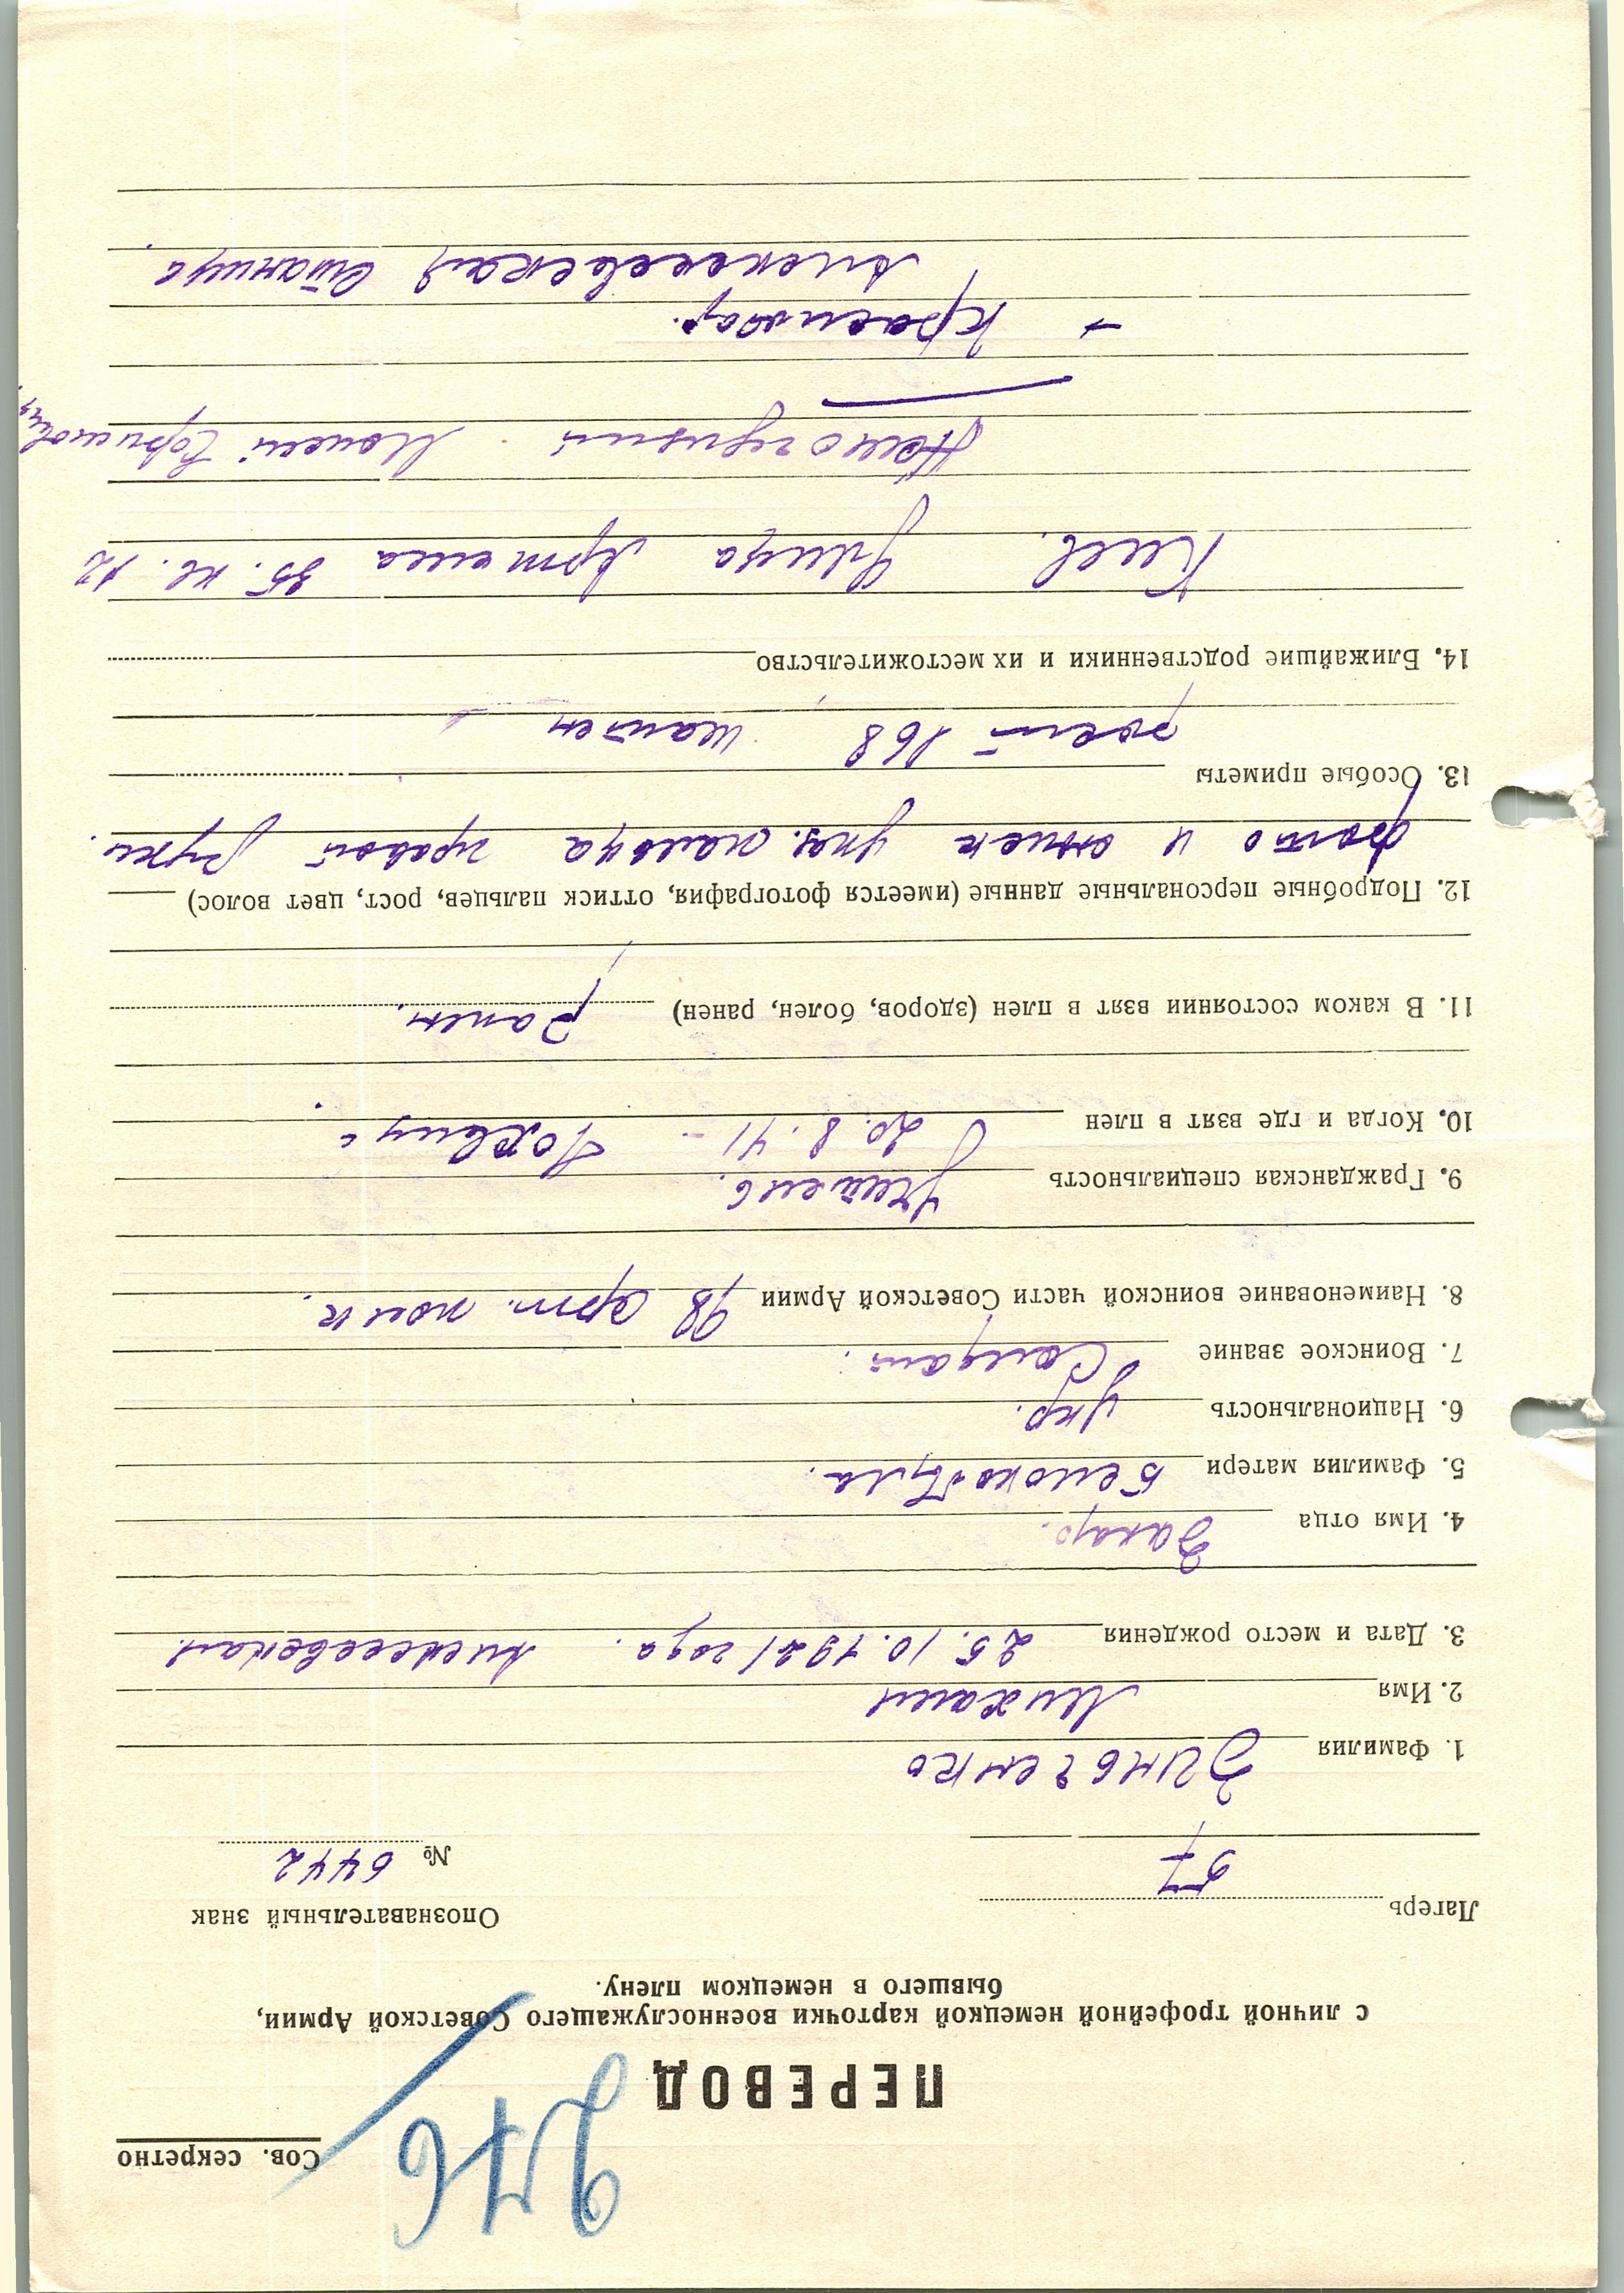 Сов. секретно
276
ПЕРЕВОД
с личной трофейной немецкой карточки военнослужащего Советской Армии,
бывшего в немецком плену.
Лагерь Опознавательный знак
57 № 6442
1. Фамилия Зинченко
2. Имя Михаил
3. Дата и место рождения 25.10.1921 года. Алексеевская
4. Имя отца Захар.
5. Фамилия матери Белокобыла.
6. Национальность Укр.
7. Воинское звание Солдат.
8. Наименование воинской части Советской Армии 98 арт. полк.
9. Гражданская специальность учитель.
10. Когда и где взят в плен 20.8.41 –
11. В каком состоянии взят в плен (здоров, болен, ранен) ранен.
12. Подробные персональные данные (имеется фотография, оттиск пальцев, рост, цвет волос)
фото и оттиск указ. пальца правой руки.
13. Особые приметы
рост 168 шатен
14. Ближайшие родственники и их местожительство
Киев. Улица Артема 35. кв. 12
Краснодар.
Алексеевская станица.